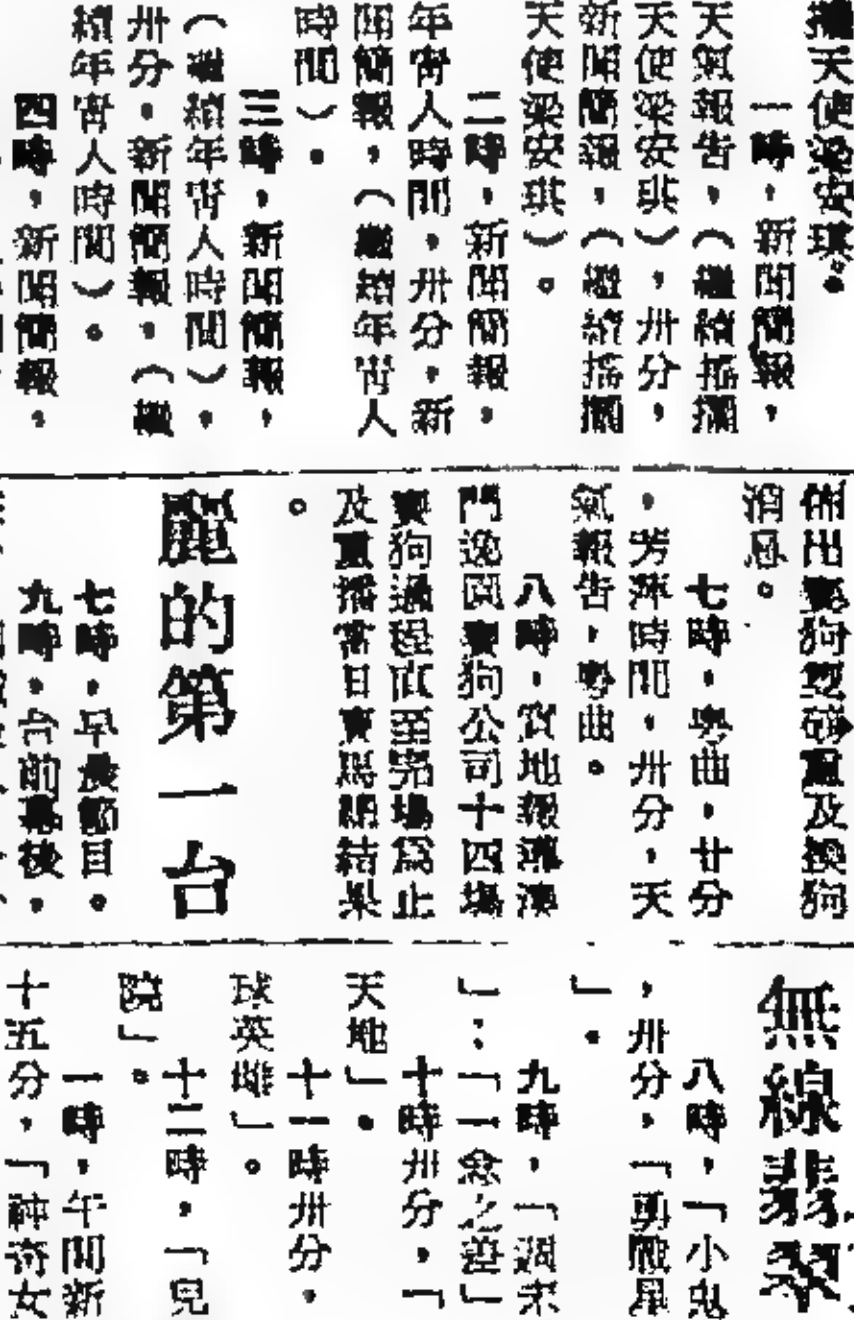 搖天使梁安琪。
一時，新聞簡報，
天氣報告，（繼續搖擱
天使梁安琪），卅分，
新聞簡報，（繼續搖擱
天使梁安琪）。
二時，新聞簡報，
年宵人時間，卅分，新
聞簡報，（繼續年宵人
時間）。
三時，新聞簡報，
（繼續年宵人時間），
卅分，新聞簡報，（繼
續年宵人時間）。
四時，新聞簡報，
佈出賽狗雙磅重及換狗
消息。
七時，粵曲，廿分
，芳萍時間，卅分，天
氣報告，粵曲。
八時，實地報導澳
門逸園賽狗公司十四場
賽狗過程直至完場為止
及重播當日賽馬詳結果
。
麗的第一台
七時，早晨節目。
九時，台前幕後，
無線翡翠
八時，「小鬼
，卅分，「勇戰星
」。
九時，「週末
」：「一念之善」
十時卅分，「
天地」。
十一時卅分，
球英雄」。
十二時，「兒
院」。
一時，午間新
十五分，「神奇女